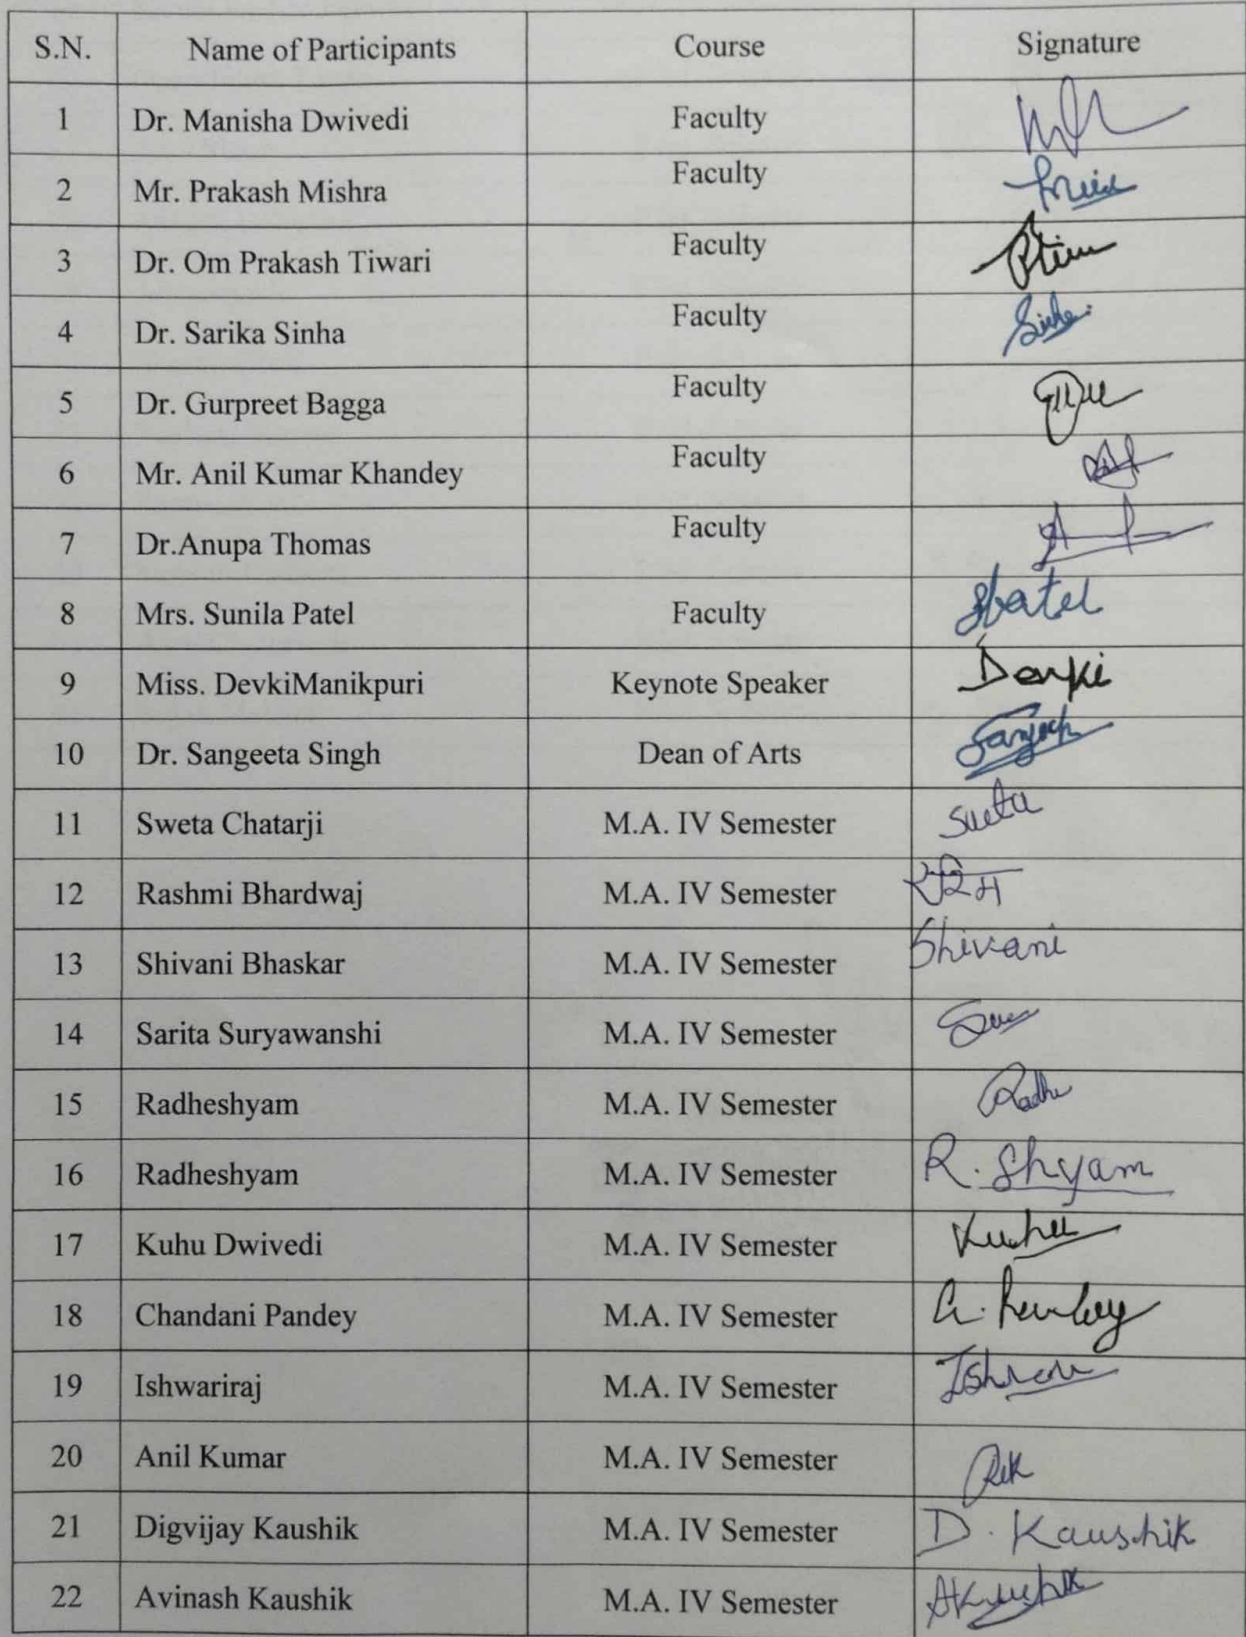 S.N. Name of Participants Course Signature
1 Dr. Manisha Dwivedi Faculty
2 Mr. Prakash Mishra Faculty
3 Dr. Om Prakash Tiwari Faculty
4 Dr. Sarika Sinha Faculty
5 Dr. Gurpreet Bagga Faculty
6 Mr. Anil Kumar Khandey Faculty
7 Dr.Anupa Thomas Faculty
8 Mrs. Sunila Patel Faculty SPatel
9 Miss. DevkiManikpuri Keynote Speaker Devki
10 Dr. Sangeeta Singh Dean of Arts
11 Sweta Chatarji M.A. IV Semester Sweta
12 Rashmi Bhardwaj M.A. IV Semester
13 Shivani Bhaskar M.A. IV Semester Shivani
14 Sarita Suryawanshi M.A. IV Semester
15 Radheshyam M.A. IV Semester Radhe
16 Radheshyam M.A. IV Semester R. Shyam
17 Kuhu Dwivedi M.A. IV Semester Kuhu
18 Chandani Pandey M.A. IV Semester
19 Ishwariraj M.A. IV Semester
20 Anil Kumar M.A. IV Semester
21 Digvijay Kaushik M.A. IV Semester D. Kaushik
22 Avinash Kaushik M.A. IV Semester AKaushik